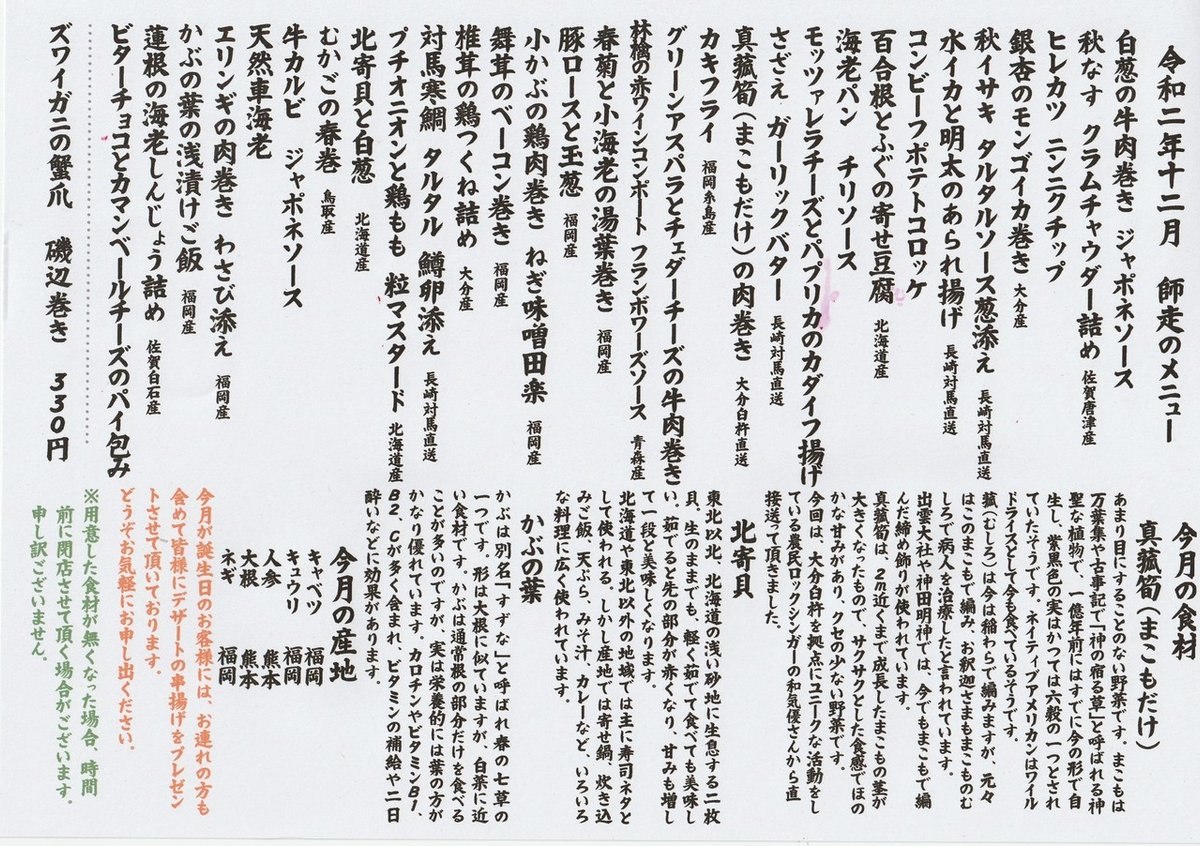 令和二年十二月　師走のメニュー
白葱の牛肉巻き　ジャポネソース
秋なす　クラムチャウダー詰め　佐賀唐津産
ヒレカツ　ニンニクチップ
銀杏のモンゴイカ巻き　大分産
秋イサキ　タルタルソース葱添え　長崎対馬直送
水イカと明太のあられ揚げ　長崎対馬直送
コンビーフポテトコロッケ
百合根とふぐの寄せ豆腐　北海道産
海老パン　チリソース
モッツァレラチーズとパプリカのカダイフ揚げ
さざえ　ガーリックバター　長崎対馬直送
真菰筍(まこもだけ)の肉巻き　大分臼杵直送
カキフライ　福岡糸島産
グリーンアスパラとチェダーチーズの牛肉巻き
林檎の赤ワインコンポート　フランボワーズソース　青森産
春菊と小海老の湯葉巻き　福岡産
豚ロースと玉葱　福岡産
小かぶの鶏肉巻き　ねぎ味噌田楽　福岡産
舞茸のベーコン巻き　福岡産
椎茸の鶏つくね詰め　大分産
対馬寒鯛　タルタル　鱒卵添え　長崎対馬直送
プチオニオンと鶏もも　粒マスタード　北海道産
北寄貝と白葱　北海道産
むかごの春巻　鳥取産
牛カルビ　ジャポネソース
天然車海老
エリンギの肉巻き　わさび添え　福岡産
かぶの葉の浅漬けご飯　福岡産
蓮根の海老しんじょう詰め　佐賀白石産
ビターチョコとカマンベールチーズのパイ包み
ズワイガニの蟹爪　磯辺巻き　330円
今月の食材
真菰筍(まこもだけ)
あまり目にすることのない野菜です。まこもは
万葉集や古事記で「神の宿る草」と呼ばれる神
聖な植物で、一億年前にはすでに今の形で自
生し、紫黒色の実はかつては六穀の一つとされ
ていたそうです。ネイティブアメリカンはワイル
ドライスとして今も食べているそうです。
菰(むしろ)は今は稲わらで編みますが、元々
はこのまこもで編み、お釈迦さまもまこものむ
しろで病人を治療したと言われています。
出雲大社や神田明神では、今でもまこもで編
んだ締め飾りが使われています。
真菰筍は、2m近くまで成長したまこもの茎が
大きくなったもので、サクサクとした食感でほの
かな甘みがあり、クセの少ない野菜です。
今回は、大分臼杵を拠点にユニークな活動をし
ている農民ロックシンガーの和気優さんから直
接送って頂きました。
北寄貝
東北以北、北海道の浅い砂地に生息する二枚
貝。生のままでも、軽く茹でて食べても美味し
い。茹でると先の部分が赤くなり、甘みも増し
て一段と美味しくなります。
北海道や東北以外の地域では主に寿司ネタと
して使われる。しかし産地では寄せ鍋、炊き込
みご飯、天ぷら、みそ汁、カレーなど、いろいろ
な料理に広く使われています。
かぶの葉
かぶは別名「すずな」と呼ばれ春の七草の
一つです。形は大根に似ていますが、白菜に近
い食材です。かぶは通常根の部分だけを食べる
ことが多いのですが、実は栄養的には葉の方が
かなり優れています。カロチンやビタミンB1、
B2、Cが多く含まれ、ビタミンの補給や二日
酔いなどに効果があります。
今月の産地
キャベツ　福岡
キュウリ　福岡
人参　熊本
大根　熊本
ネギ　福岡
今月が誕生日のお客様には、お連れの方も
含めて皆様にデザートの串揚げをプレゼン
トさせて頂いております。
どうぞお気軽にお申し出ください。
※用意した食材が無くなった場合、時間
前に閉店させて頂く場合がございます。
申し訳ございません。